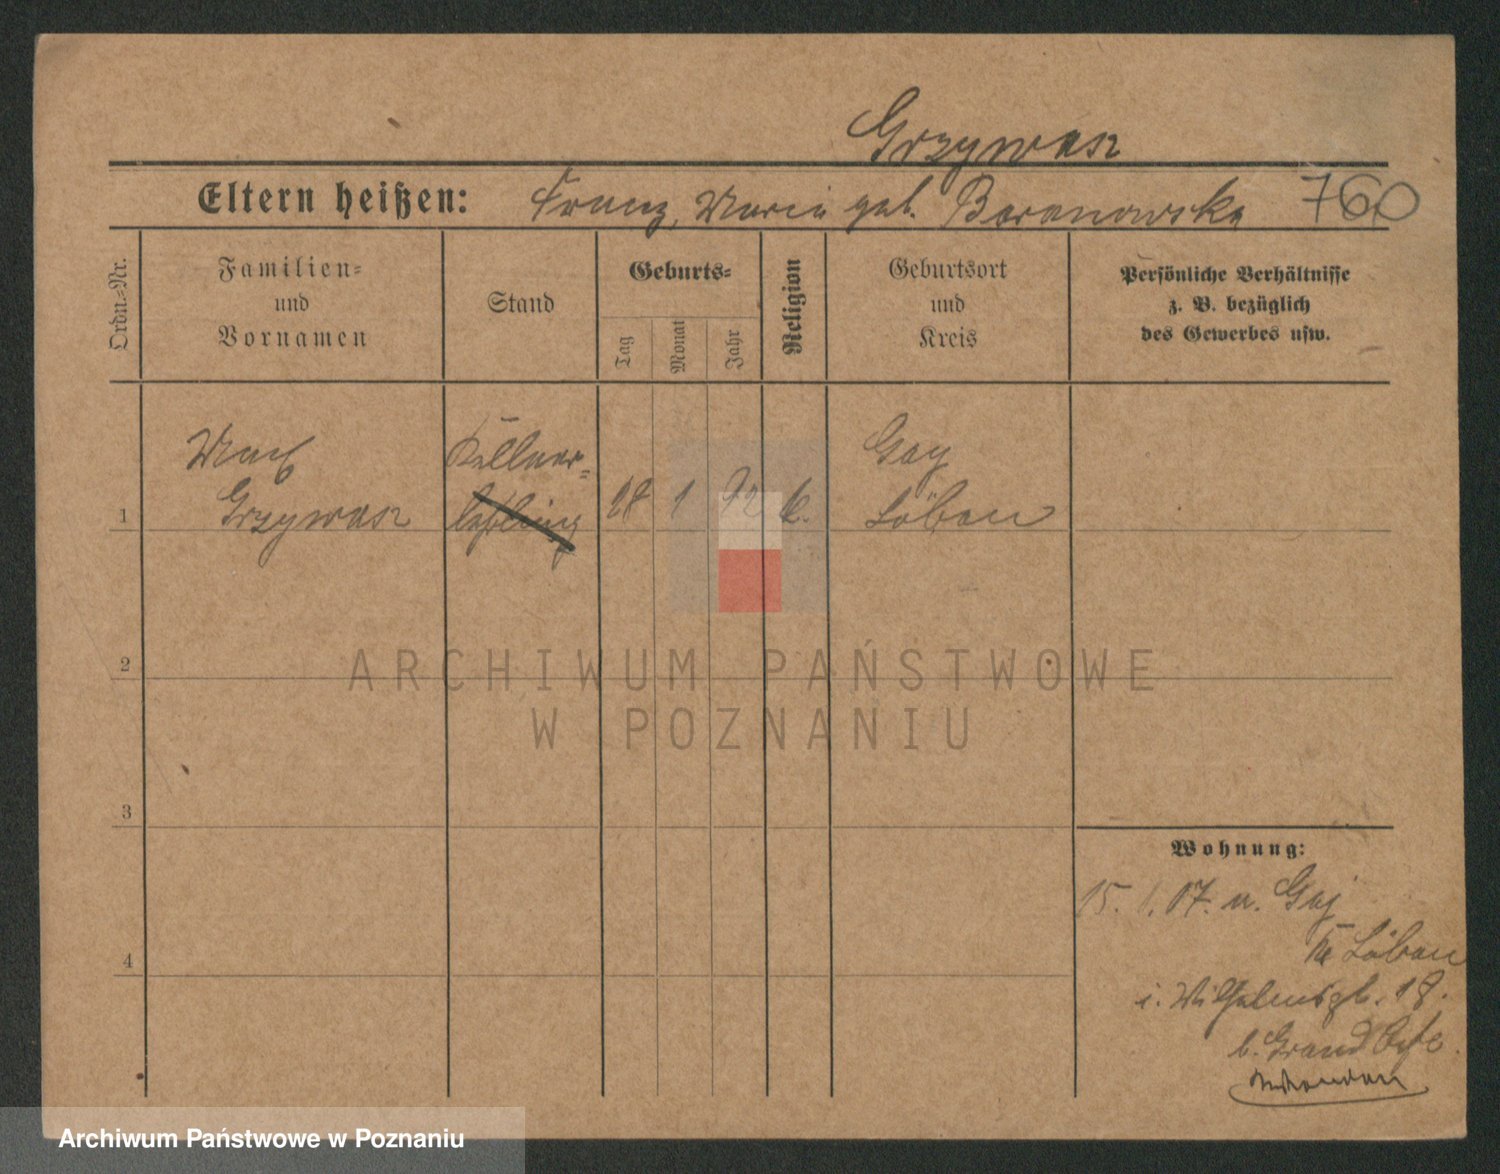 Grzywacz
Eltern heißen: Franz, Maria geb. Baranowska 760
Ordn.-Nr.
Familien-
und
Vornamen
Stand
Geburts-
Tag
Monat
Jahr
Religion
Geburtsort
und
Kreis
Persönliche Verhältnisse
z. B. bezüglich
des Gewerbes usw.
Max Kellner- Gay
1 Grzywacz lehrling 28 1 92 k. Löbau
2
ARCHIWUM PAŃSTWOWE
W POZNANIU
3
Wohnung:
15. 1. 07. v. Gaj
Kr Löbau
4
i. Wilhelmspl. 18.
b. Grand Cafe
Archiwum Państwowe w Poznaniu